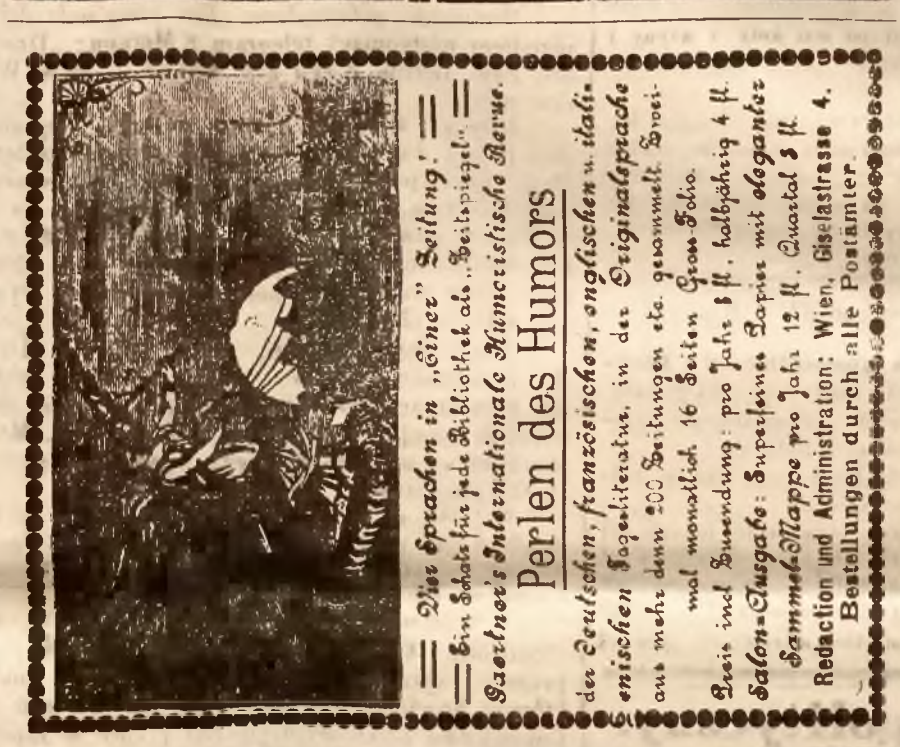 Vier Sprachen in „Einer" Zeitung!
Ein Schatz für jede Bibliothek als „Zeitspiegel".
Gaertner's Internationale Humoristische Revue.
Perlen des Humors
der deutschen, französischen, englischen u. itali-
enischen Tagesliteratur, in der Originalsprache
aus mehr denn 200 Zeitungen etc. gesammelt. Zwei-
mal monatlich 16 Seiten Gross-Folio.
Preis incl Zusendung: pro Jahr 8 fl. halbjährig 4 fl.
Salon-Ausgabe: Superfeines Papier mit eleganter
Sammel-Mappe pro Jahr 12 fl. Quartal 3 fl.
Redaction und Administration: Wien, Giselastrasse 4.
Bestellungen durch alle Postämter.